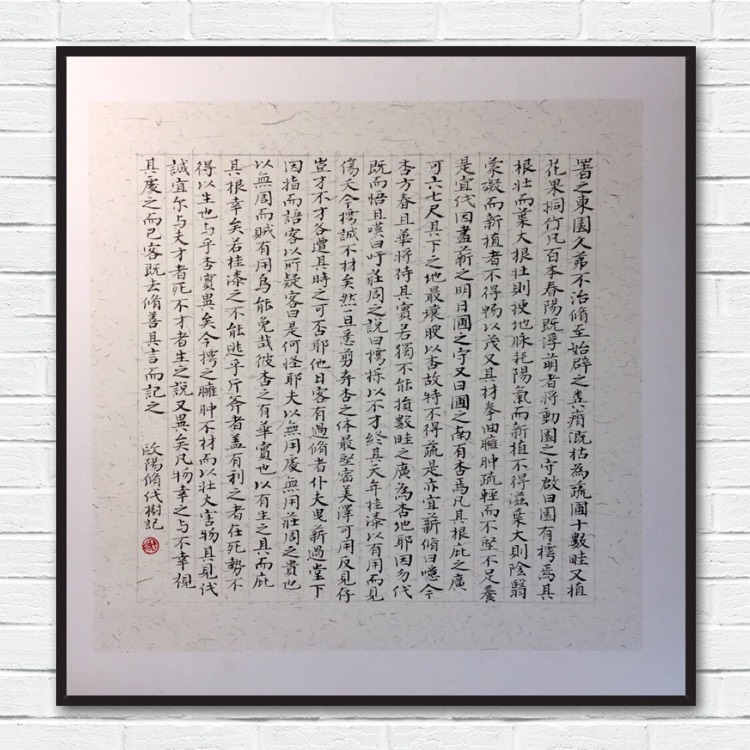 署之東園久茀不治脩至始辟之糞瘠溉枯為蔬圃十數畦又植
花果桐竹凡百本春陽既浮萌者將動園之守啟曰園有樗焉其
根壯而葉大根壯則梗地脉耗陽氣而新植不得滋葉大則陰翳
蒙礙而新植者不得暢以茂又其材拳曲臃肿疏輕而不堅不足養
是宜伐因盡薪之明日圃之守又曰圃之南有杏焉凡其根庇之廣
可六七尺其下之地最壤腴以杏故特不得蔬是亦宜薪脩曰噫今
杏方春且華將待其實若獨不能損數畦之廣為杏地耶因勿伐
既而悟且嘆曰吁莊周之說曰樗櫟以不才終其天年桂漆以有用而見
傷夭今樗誠不材矣然一旦悉剪弃杏之体最堅密美澤可用反見存
豈才不才各遭其時之可否耶他日客有過脩者仆夫曳薪過堂下
因指而語客以所疑客曰是何怪耶夫以無用處無用莊周之貴也
以無周而賊有用烏能免哉彼杏之有華實也以有生之具而庇
其根幸矣若桂漆之不能逃乎斤斧者盖有利之者在死勢不
得以生也与乎杏實異矣今樗之臃肿不材而以壯大害物其見伐
誠宜尔与夫才者死不才者生之說又異矣凡物幸之与不幸視
其處之而已客既去脩善其言而記之 欧陽脩伐樹記